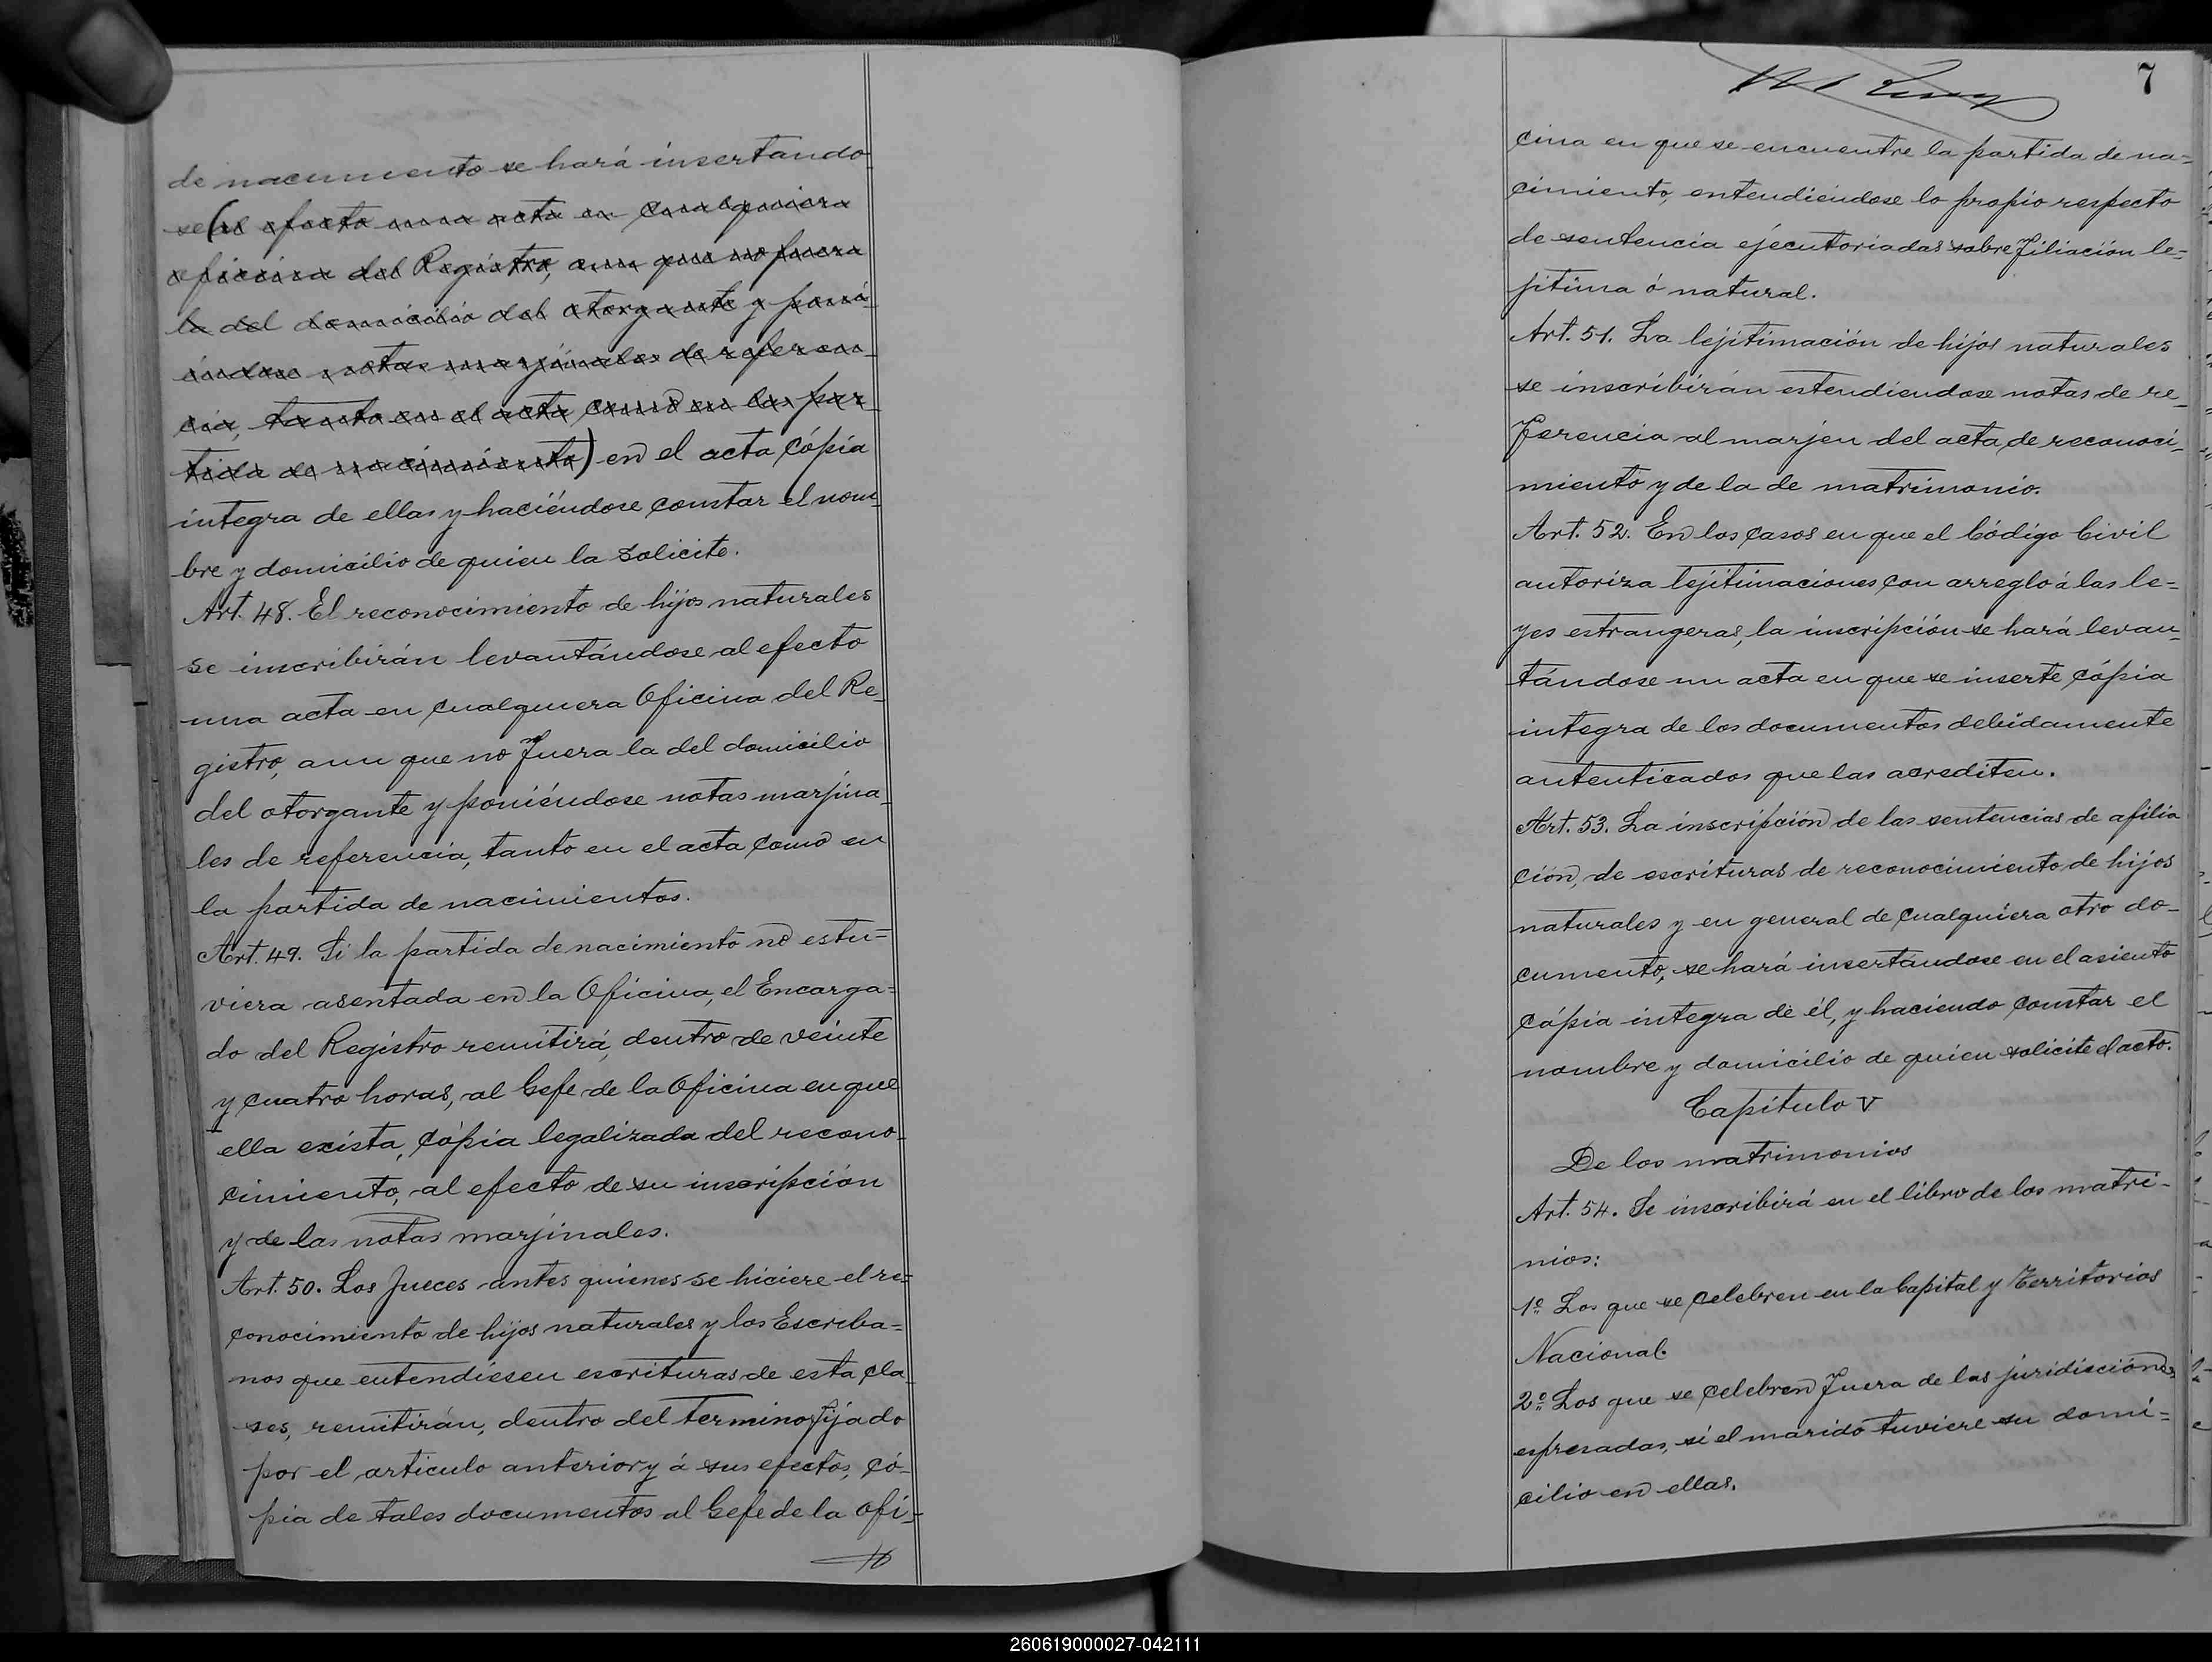 de nacimiento se hará insertando
se (al efecto una acta en cualquiera
oficina del Registro, aun que no fuera
la del domicilio del otorgante y poni-
éndose notas marjinales de referen-
cia, tanto en el acta como en la par-
tida de nacimiento) en el acta cópia
integra de ellas y haciéndose constar el nom-
bre y domicilio de quien la solicite.
Art. 48. El reconocimiento de hijos naturales
se inscribirán levantándose al efecto
una acta en cualquiera Oficina del Re-
gistro, aun que no fuera la del domicilio
del otorgante y poniéndose notas marjina-
les de referencia, tanto en el acta como en
la partida de nacimientos.
Art. 49. Si la partida de nacimiento no estu=
viera asentada en la Oficina, el Encarga=
do del Registro remitirá, dentro de veinte
y cuatro horas, al Gefe de la Oficina en que
ella exista, cópia legalizada del recono-
cimiento, al efecto de su inscripción
y de las notas marjinales.
Art. 50. Los Jueces antes quienes se hiciere el re=
conocimiento de hijos naturales y los Escriba=
nos que entendiesen escrituras de esta cla
ses, remitirán, dentro del termino fijado
por el articulo anterior y á sus efectos, có-
pia de tales documentos al Gefe de la ofi-
7
cina en que se encuentre la partida de na=
cimiento, entendiéndose lo propio respecto
de sentencia ejecutoriadas sobre filiación le=
jitima ó natural.
Art. 51. La lejitimación de hijos naturales
se inscribirán estendiendose notas de re-
ferencia al marjen del acta de reconoci-
miento y de la de matrimonio.
Art. 52. En los casos en que el Código Civil
autoriza lejitimaciones con arreglo á las le=
yes estrangeras, la inscripción se hará levan-
tándose un acta en que se inserte cópia
integra de los documentos debidamente
autenticados que las acrediten.
Art. 53. La inscripción de las sentencias de afilia
ción, de escrituras de reconocimiento de hijos
naturales y en general de cualquiera otro do-
cumento, se hará insertándose en el asiento
cópia integra de él, y haciendo constar el
nombre y domicilio de quien solicite el acto.
Capítulo V
De los matrimonios
Art. 54. Se inscribirá en el libro de los matri-
nios:
1º Los que se celebren en la Capital y Territorios
Nacional.
2º Los que se celebren fuera de las juridicciónes
espresadas, si el marido tuviere su domi=
cilio en ellas.
260619000027-042111